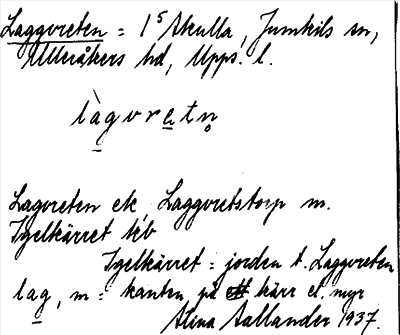 Laggvreten = 1⁵ Skulla, Jumkils sn,
Ulleråkers hd, Upps. l.
làgvretn̥
Lagvreten ek, Laggvretstorp m.
Igelkärret tkb
Igelkärret = jorden t. Laggvreten
lag, m = kanten på kärr el. myr
Stina Aallander 1937.